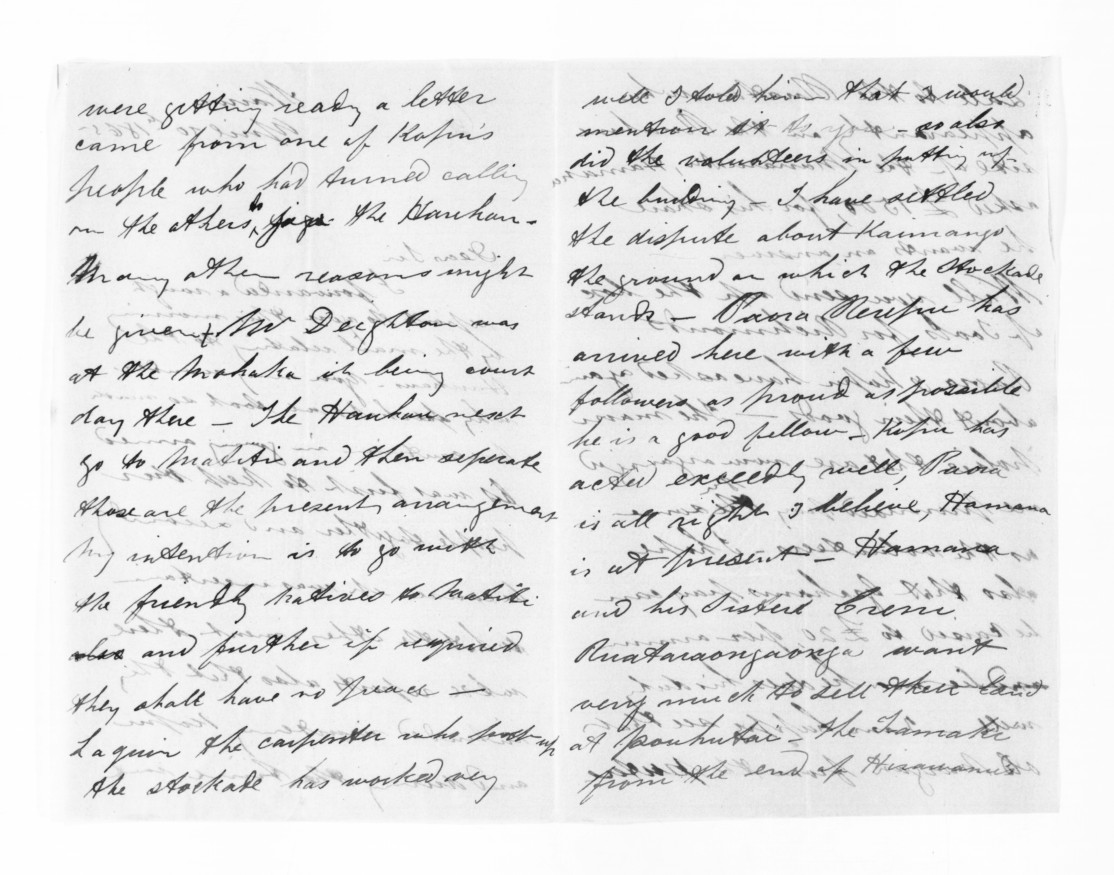 were getting ready a letter
came from one of Kopu's
people who had turned calling
on the others to join the Hauhau -
Many other reasons might
be given, Mr Deighton was
at the Mohaka it being court
day there - The Hauhau next
go to Matiti and then seperate
those are the present arrangement
My intention is to go with
the friendly natives to Matiti
and further if required
they shall have no peace -
the carpenter who put up
the stockade has worked very
well I told him that I would
mention it to you - so also
did the volunteers in putting up
the building - I have settled
the dispute about Kaimango
the ground on which the stockade
stands - Paora Rerepu has
arrived here with a few
followers as proud as possible
he is a good fellow - Kopu has
acted exceedly well, Paora
is all right I believe, Hamana
is at present - Hamana
and his Sister
want
very much to sell their land
at the Tramaki
from the end of